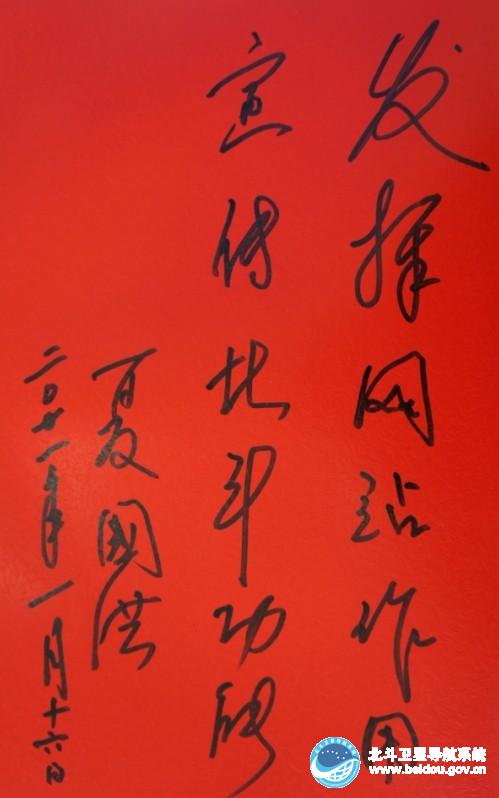 发挥网站作用
宣传北斗功能
夏國洪
二〇十一年一月十六日
北斗卫星导航系统
www.beidou.gov.cn